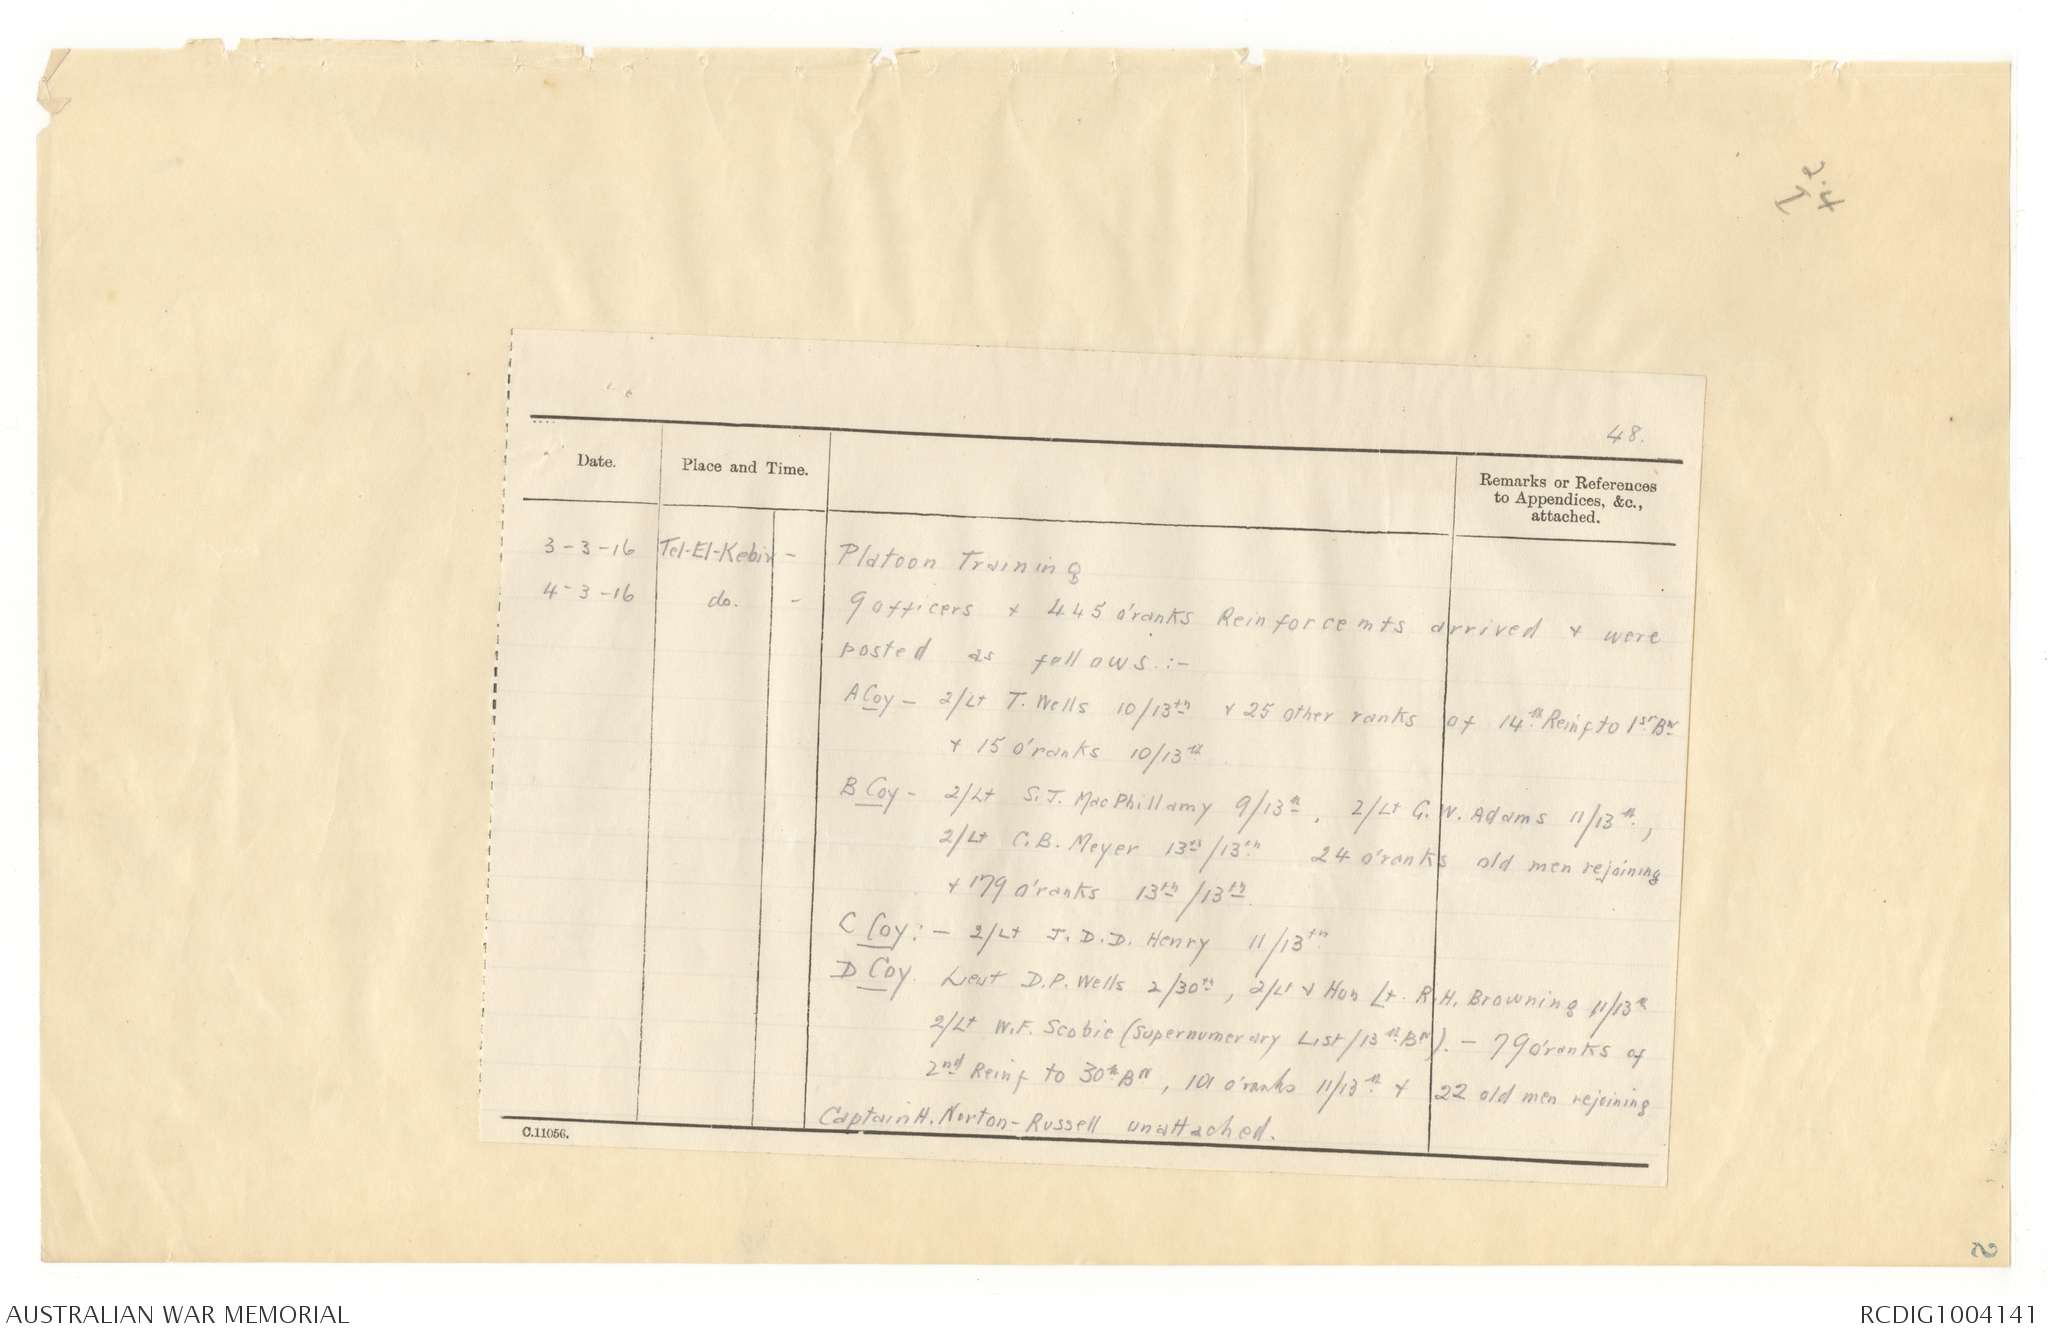 48.
Date. Place and Time. Remarks or References
to Appendices, &c.,
attached.
3-3-16 Tel-El-Kebir - Platoon Training
4-3-16 do. - 9 officers + 445 o'ranks Reinforcemts arrived + were
posted as follows:-
A Coy - 2/Lt T. Wells 10/13th + 25 other ranks of 14th Reinf to 1st Bn
+ 15 o'ranks 10/13th
B Coy - 2/Lt S.J. MacPhillamy 9/13th, 2/Lt G.W. Adams 11/13th,
2/Lt C.B. Meyer 13th/13th 24 o'ranks old men rejoining
+ 179 o'ranks 13th/13th
C Coy:- 2/Lt J.D.D. Henry 11/13th
D Coy. Lieut D.P. Wells 2/30th, 2/Lt + Hon Lt. R.H. Browning 11/13th
2/Lt W.F. Scobie (Supernumerary List/13th Bn). - 79 o'ranks of
2nd Reinf to 30th Bn, 101 o'ranks 11/13th + 22 old men rejoining
Captain H. Norton-Russell unattached.
C.11056.
AUSTRALIAN WAR MEMORIAL RCDIG1004141